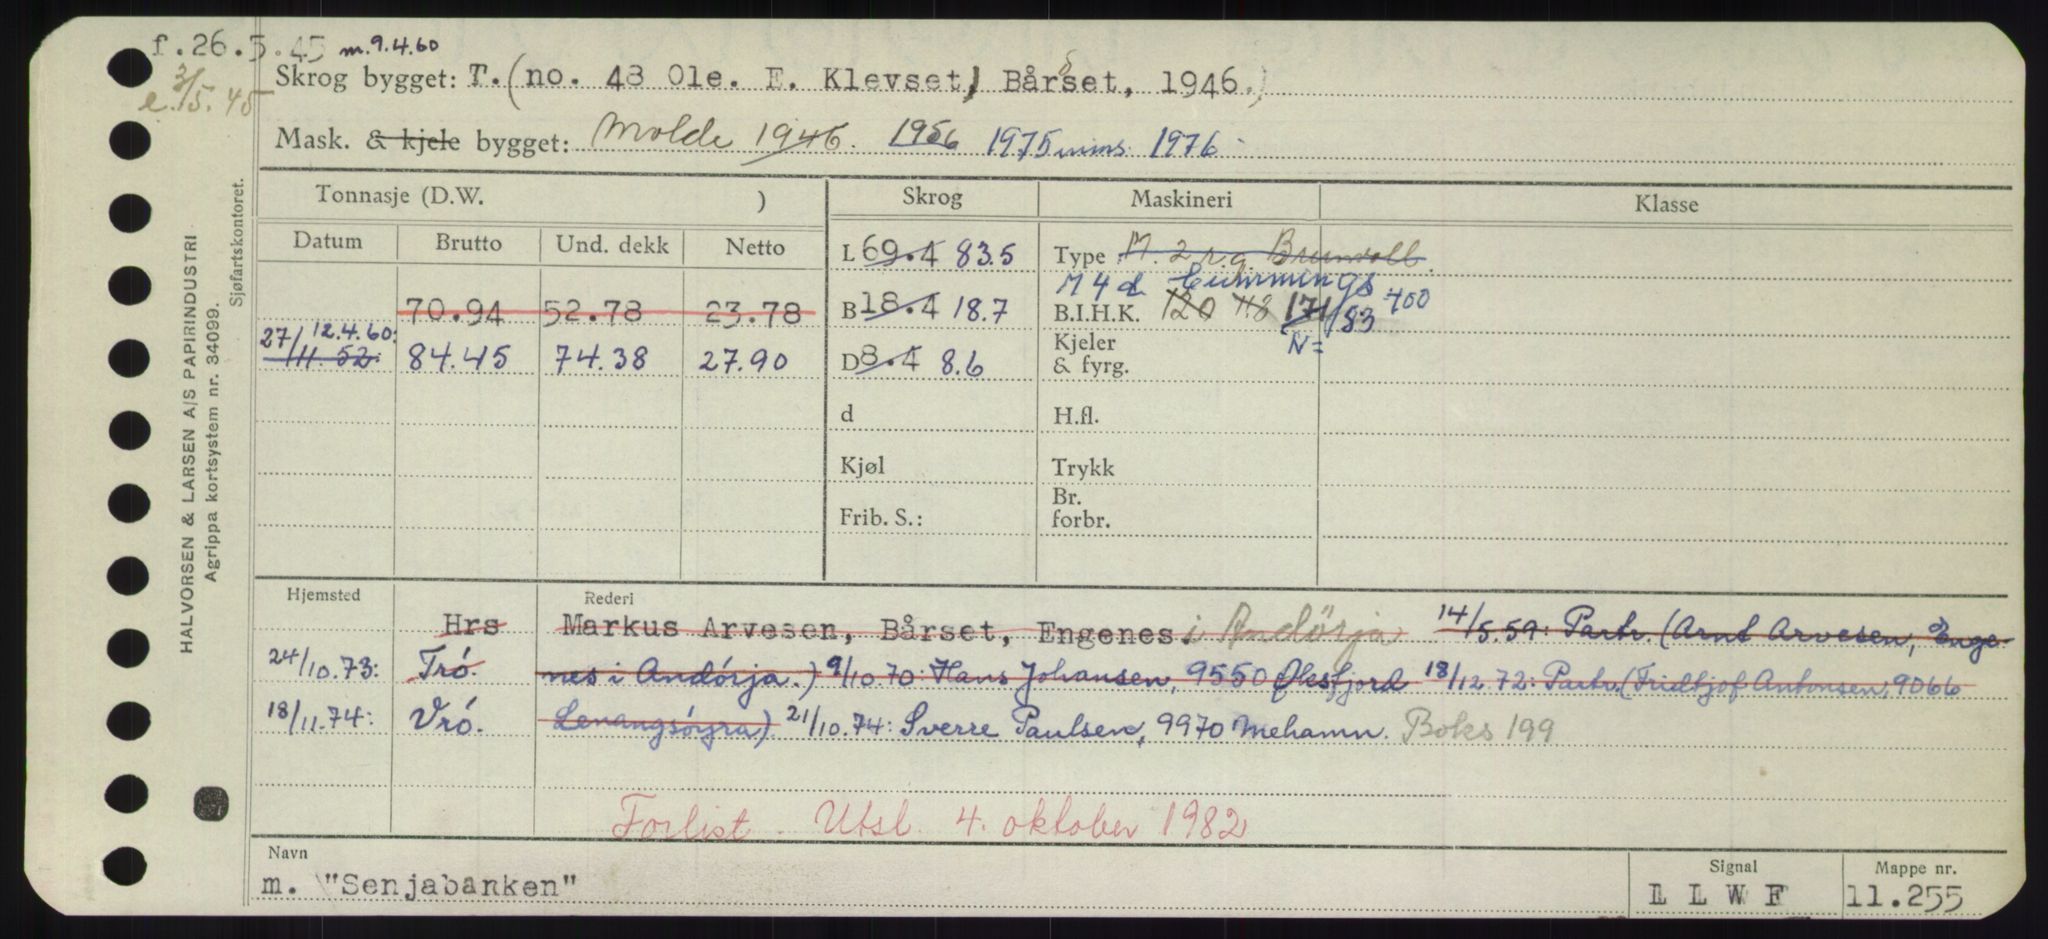 f.26.5.45 m.9.4.60
e.3/5.45
Skrog bygget: T.(no. 48 Ole. E. Klevset, Bårset, 1946.)
Mask. & kjele bygget: Molde 1946. 1956 1975 mms. 1976
Tonnasje (D.W. )
Skrog
Maskineri
Klasse
Datum
Brutto
Und. dekk
Netto
L 69.4 83.5
Type M. 2 r.g. Brunvoll
M 4 d Cummings
70.94 52.78 23.78
B 18.4 18.7
B.I.H.K. 120 118 171/83 400
N=
27/11.52 12.4.60: 84.45 74.38 27.90
D 8.4 8.6
Kjeler & fyrg.
d
H.fl.
Kjøl
Trykk
Frib. S.:
Br. forbr.
Hjemsted
Rederi
Hrs Markus Arvesen, Bårset, Engenes i Andörja 14/5.59: Partr. (Arnt Arvesen, Enge-
24/10.73: Trö. nes i Andörja.) 9/10 70: Hans Johansen, 9550 Øksfjord 18/12.72: Partr. (Fridtjof Antonsen, 9066
18/11.74: Vrö. Lenangsöyra) 21/10.74: Sverre Paulsen, 9970 Mehamn. Boks 199
Forlist. Utsl. 4. oktober 1982
Navn
Signal
Mappe nr.
m. "Senjabanken"
L L W F
11.255
HALVORSEN & LARSEN A/S PAPIRINDUSTRI
Agrippa kortsystem nr. 34099.
Sjøfartskontoret.